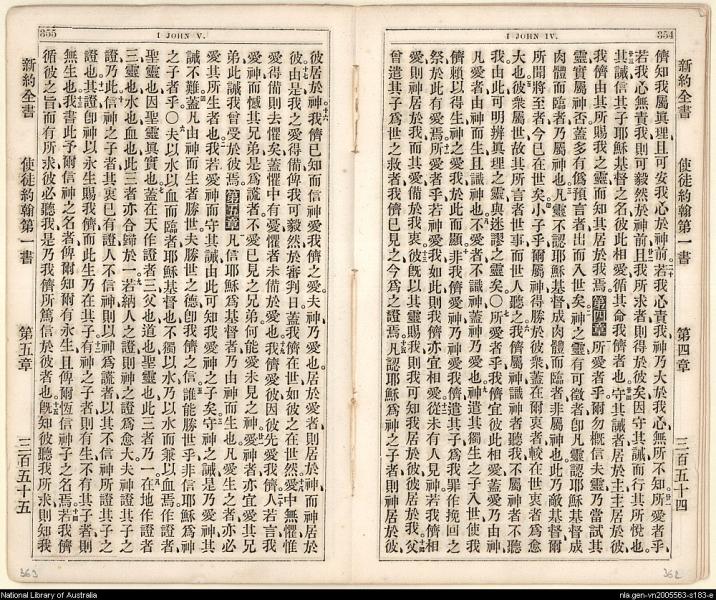 354
I JOHN IV.
新約全書 使徒約翰第一書 第四章 三百五十四
儕知我屬眞理、且可安我心於神前、若我心責我、神乃大於我心、無所不知、所愛者乎、
若我心無責我、則可毅然於神前、且我所求者、則得於彼矣、因守其誡、而行其所悅也、
其誡信其子耶穌基督之名、彼此相愛、循其命我儕者也、守其誡者居於主、主居於彼、
我儕由其所賜我之靈、而知其居於我焉、第四章 所愛者乎、爾勿概信夫靈、乃當試其
靈實屬神否、蓋多有僞預言者出而入世矣、神之靈有可徵者、卽凡靈認耶穌基督成
肉體而臨者、乃屬神也、凡靈不認耶穌基督成肉體而臨者、非屬神也、此乃敵基督、爾
所聞將至者、今已在世矣、小子乎、爾屬神、得勝於彼衆、蓋在爾衷者、較在世衷者爲愈
大也、彼衆屬世、故其所言者世事、而世人聽之、我儕屬神、識神者聽我、不屬神者不聽
我、由此可明辨眞理之靈、與迷謬之靈矣、○所愛者乎、我儕宜彼此相愛、蓋愛乃由神、
凡愛者由神而生、且識神也、不愛者不識神、蓋神乃愛也、神遣其獨生之子入世、使我
儕賴以得生、神之愛我、於此而顯、非我儕愛神、乃神愛我儕、遣其子爲我罪作挽回之
祭、於此有愛焉、所愛者乎、若神愛我如此、則我儕亦宜相愛、從未有人見神、若我儕相
愛、則神居於我、而其愛備於我衷、彼旣以其靈賜我、則可知我居於彼、彼居於我、父
曾遣其子爲世之救者、我儕已見之、今爲之證焉、凡認耶穌爲神之子者、則神居於彼、
362
355
I JOHN V.
彼居於神、我儕已知而信神愛我儕之愛、夫神乃愛也、居於愛者、則居於神、而神居於
彼、由是我之愛得備、俾我可毅然於審判日、蓋我儕在世、如彼之在世然、愛中無懼、惟
愛得備、則去懼矣、蓋懼中有憂、懼者未備於愛也、我儕愛彼、因彼先愛我儕、人若言我
愛神、而憾其兄弟、是爲謊者、不愛已見之兄弟、何能愛未見之神、愛神者亦宜愛其兄
弟、此誡我曾受於彼焉、第五章 凡信耶穌爲基督者、乃由神而生也、凡愛生之者、亦必
愛其所生者也、我若愛神、而守其誡、由此可知我愛神之子矣、守神之誡、是乃愛神、其
誡不難、蓋凡由神而生者勝世、夫勝世之德、卽我儕之信、誰能勝世乎、非信耶穌爲神
之子者乎、○夫以水以血而臨者、耶穌基督也、不獨以水、乃以水而兼以血焉、作證者
聖靈也、因聖靈眞實也、蓋在天作證者三、父也、道也、聖靈也、此三者乃一、在地作證者
三、靈也、水也、血也、此三者亦合歸於一、若納人之證、則神之證爲愈大、夫神證其子之
證、乃此信神之子者、其衷已有證、人不信神、則以神爲謊者、以其不信神所證其子之
證也、其證卽神以永生賜我儕、而此生乃在其子、有神之子者、則有生、不有其子者、則
無生也、我書此予爾信神之名者、俾爾知爾有永生、且俾爾恆信神子之名焉、若我儕
循彼之旨而有所求、彼必聽我、是乃我儕所篤信於彼者也、旣知彼聽我所求、則知我
新約全書 使徒約翰第一書 第五章 三百五十五
363
National Library of Australia
nla.gen-vn2005563-s183-e